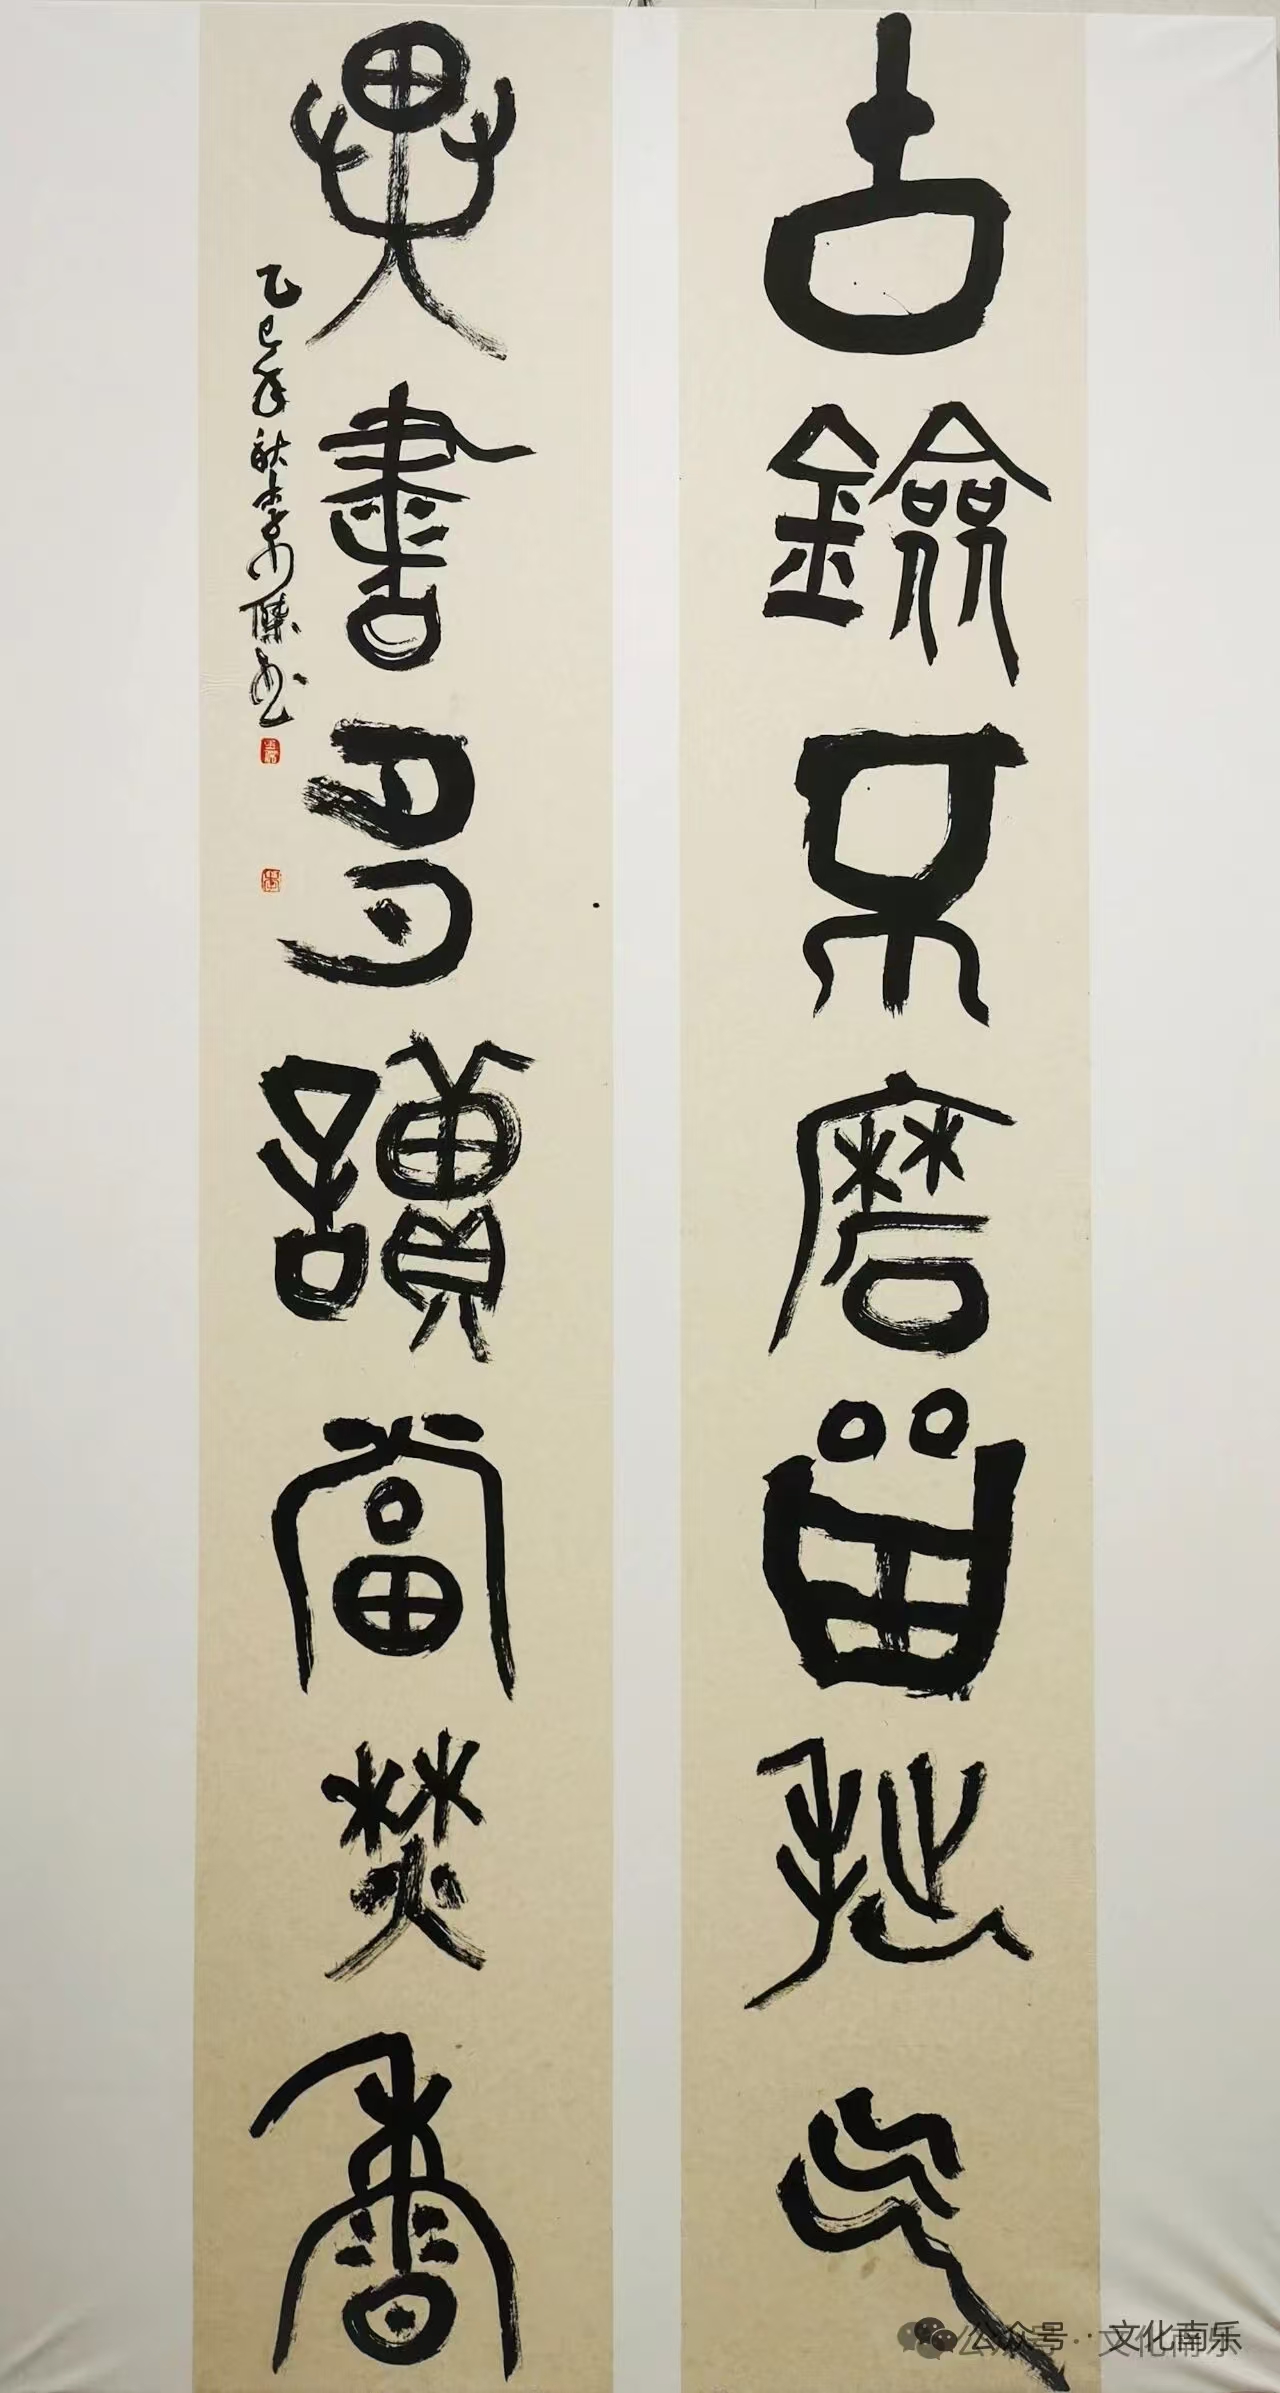 古鐱不磨留拙气
異書多讀當焚香
乙巳年秋李
書
公众号·文化南乐